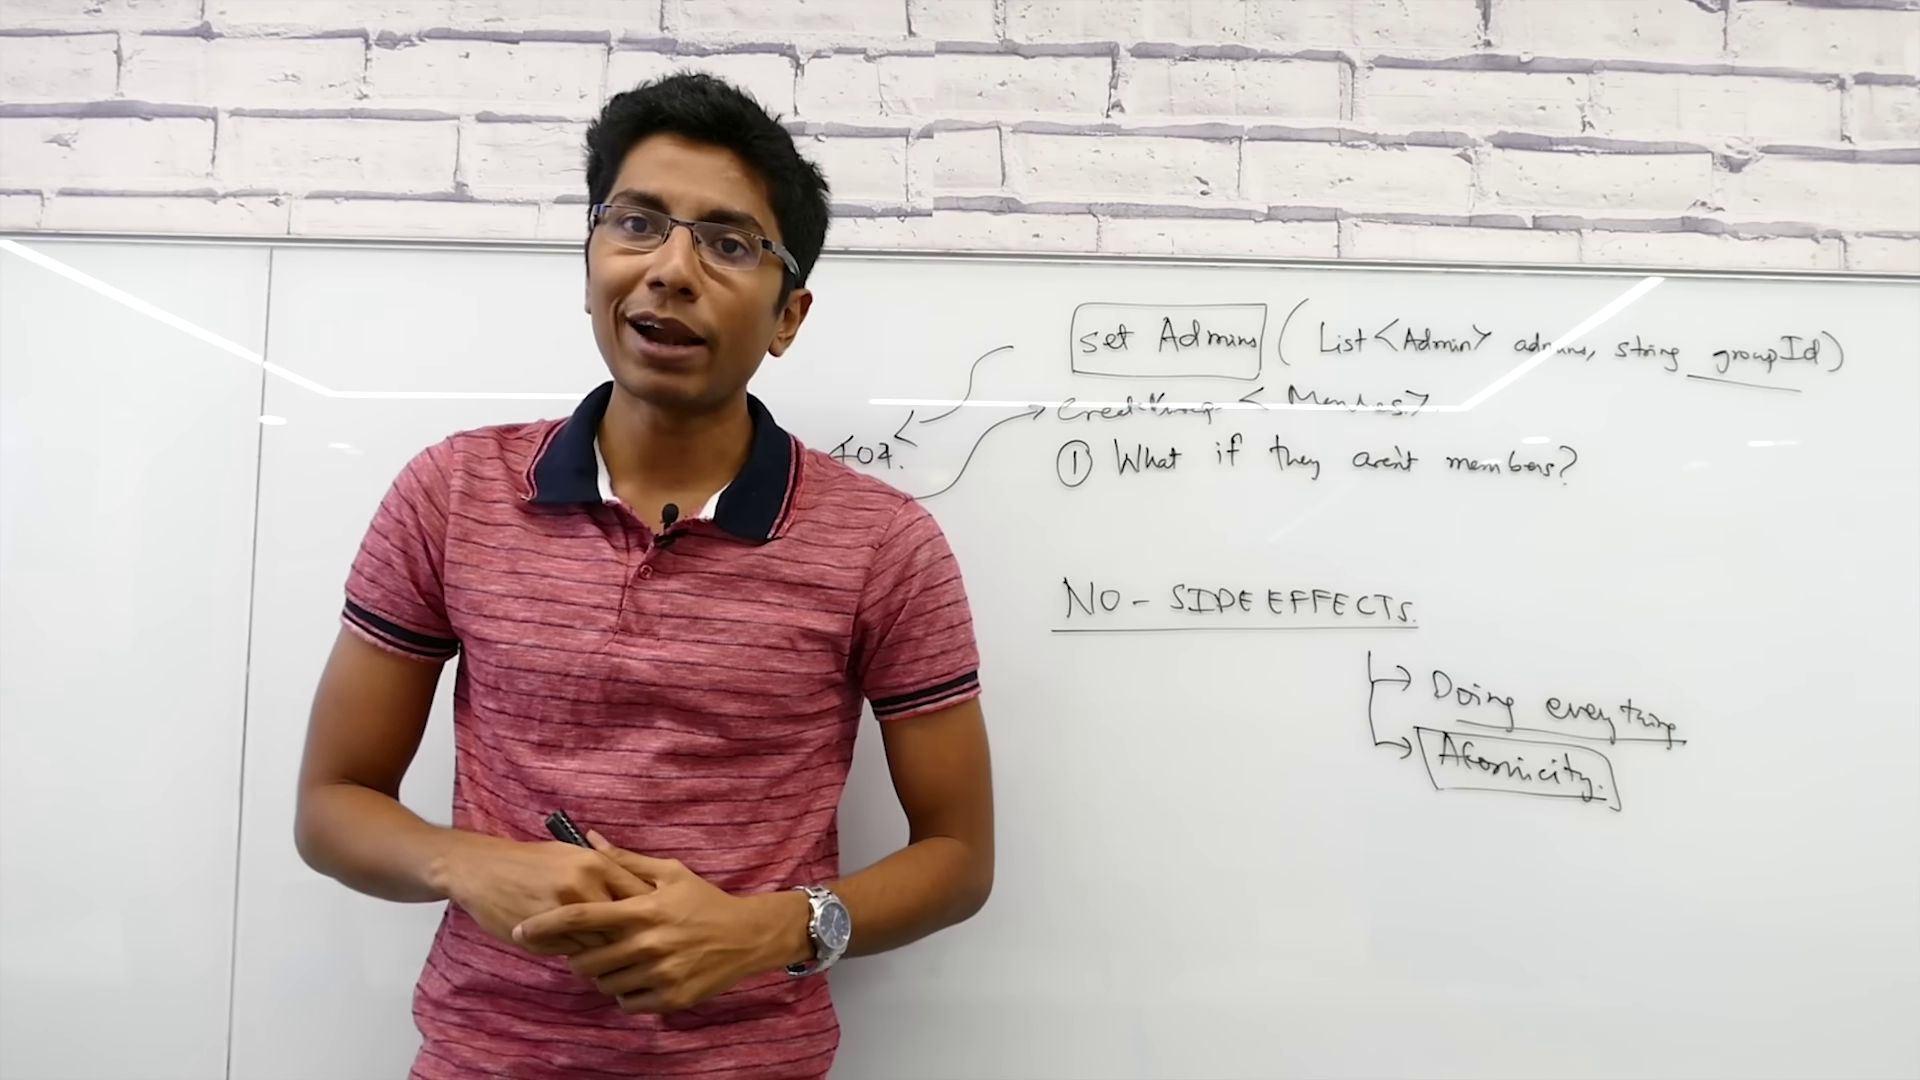 set Admins ( List <Admin> admins, string groupId)
< Members>
404.
① What if they aren't members?
NO - SIDE EFFECTS.
Doing everything
Atomicity.